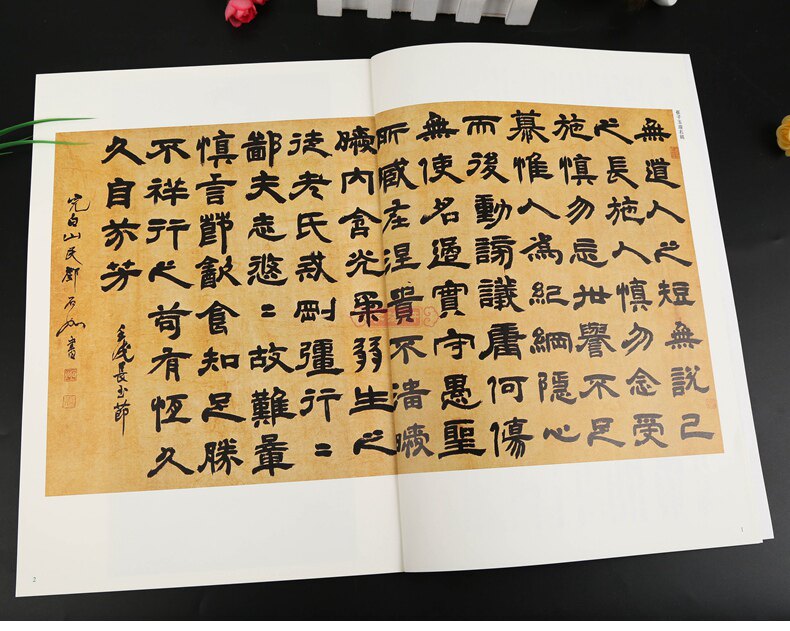 崔子玉座右銘
無道人之短無說己
之長施人慎勿念受
施慎勿忘世譽不足
慕惟人為紀綱隱心
而後動謗議庸何傷
無使名過實守愚聖
所臧在涅貴不淄曖
曖內含光柔弱生之
徒老氏戒剛彊行〻
鄙夫志悠〻故難量
慎言節飲食知足勝
不祥行之苟有恆久
久自芬芳
完白山民鄧石如書
1
2